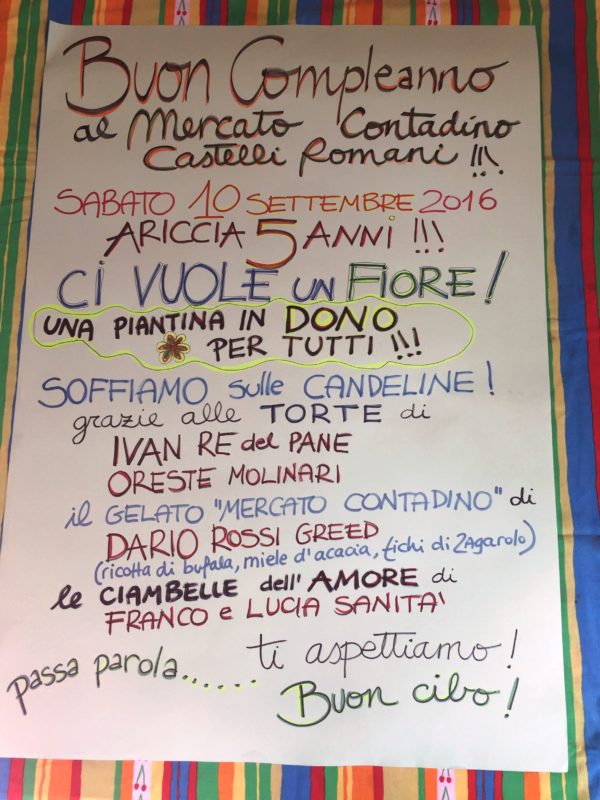 Buon Compleanno
al Mercato Contadino
Castelli Romani !!!
SABATO 10 SETTEMBRE 2016
ARICCIA 5 ANNI !!!
CI VUOLE UN FIORE!
UNA PIANTINA IN DONO
PER TUTTI !!!
SOFFIAMO sulle CANDELINE!
grazie alle TORTE di
IVAN RE del PANE
ORESTE MOLINARI
il GELATO "MERCATO CONTADINO" di
DARIO ROSSI GREED
(ricotta di bufala, miele d'acacia, fichi di Zagarolo)
le CIAMBELLE dell'AMORE di
FRANCO e LUCIA SANITA'
ti aspettiamo!
passa parola...... Buon cibo!